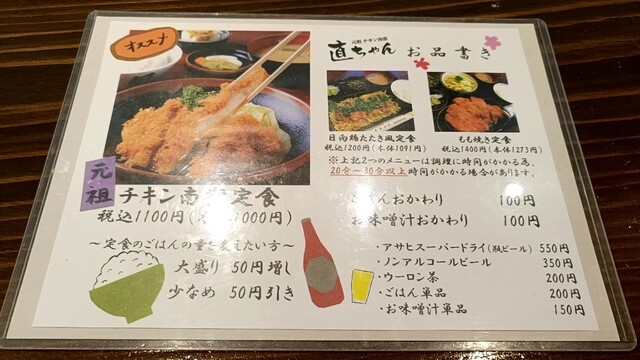 オススメ
元祖 チキン南蛮
直ちゃん お品書き
元祖
チキン南 定食
税込1100円( 1000円)
〜定食のごはんの量を変えたい方〜
大盛り 50円増し
少なめ 50円引き
日向鶏たたき風定食
税込1200円(本体1091円)
もも焼き定食
税込1400円(本体1273円)
※上記2つのメニューは調理に時間がかかる為、
20分〜30分以上時間がかかる場合があります。
ごはんおかわり 100円
お味噌汁おかわり 100円
・アサヒスーパードライ(瓶ビール) 550円
・ノンアルコールビール 350円
・ウーロン茶 200円
・ごはん単品 200円
・お味噌汁単品 150円